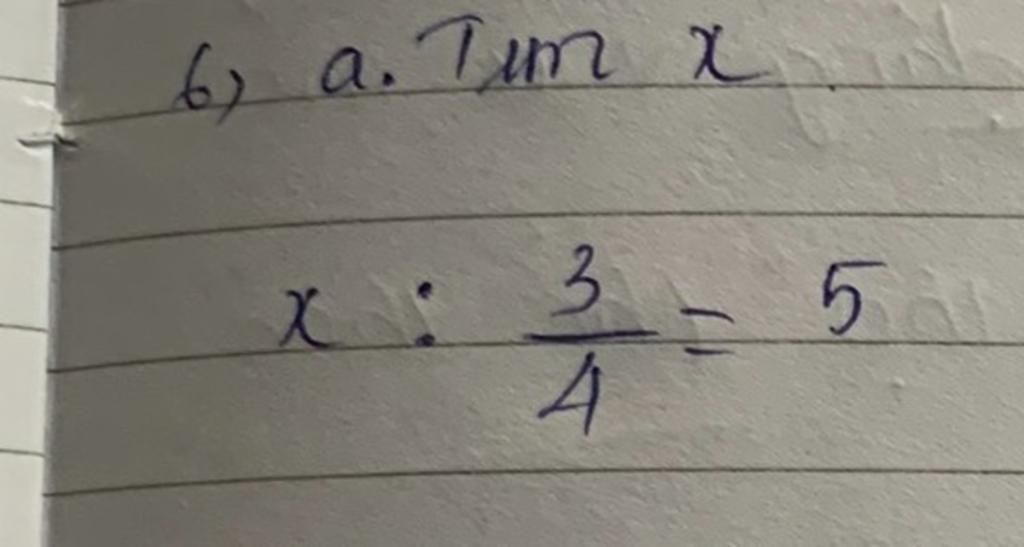 6) a. Tìm x
x : 3/4 = 5